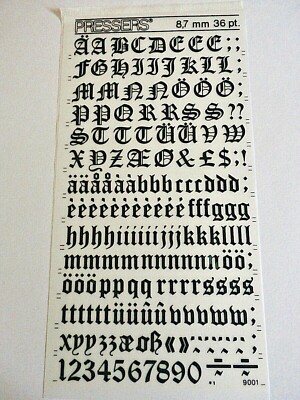 PRESSERS® 8,7 mm 36 pt.
ÄABCDEEE;;
FGHIIJKLL;
MMNNÑÖÖÖ;
PPQRRSS??
STTTÜÜVW
XYZÆØ&£$;!
äääååàabbbcccddd;
èéèèéèéèéèéèfffggg
hhhhiiiiiijjjkkkllll
mmmmnnnnnnnööö;
öööppqqrrrrssss
ttttttüüûûvvvwww;
xyyzzæøß«»
1234567890
9001